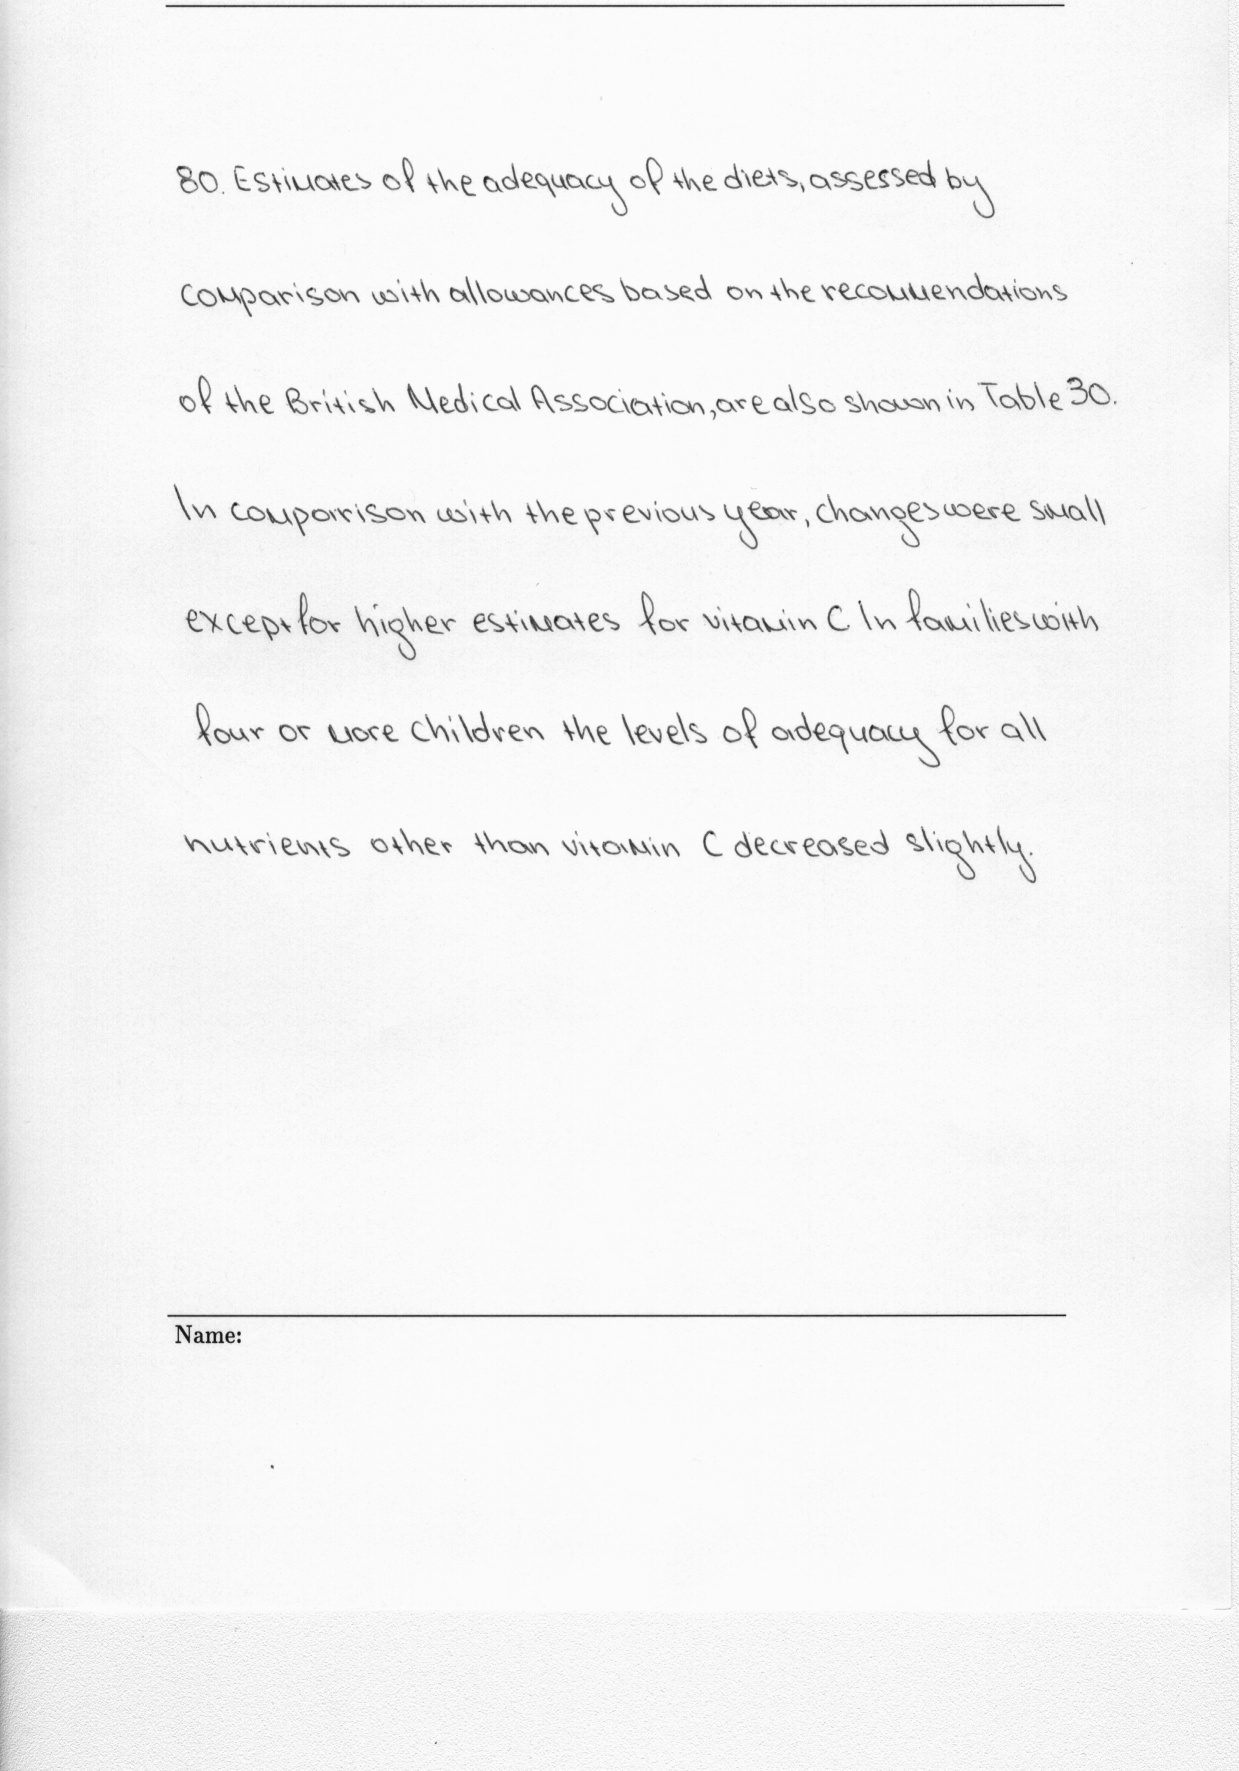 80. Estimates of the adequacy of the diets, assessed by
comparison with allowances based on the recommendations
of the British Medical Association, are also shown in Table 30.
In comparison with the previous year, changes were small
except for higher estimates for vitamin C In families with
four or more children the levels of adequacy for all
nutrients other than vitamin C decreased slightly.
Name: